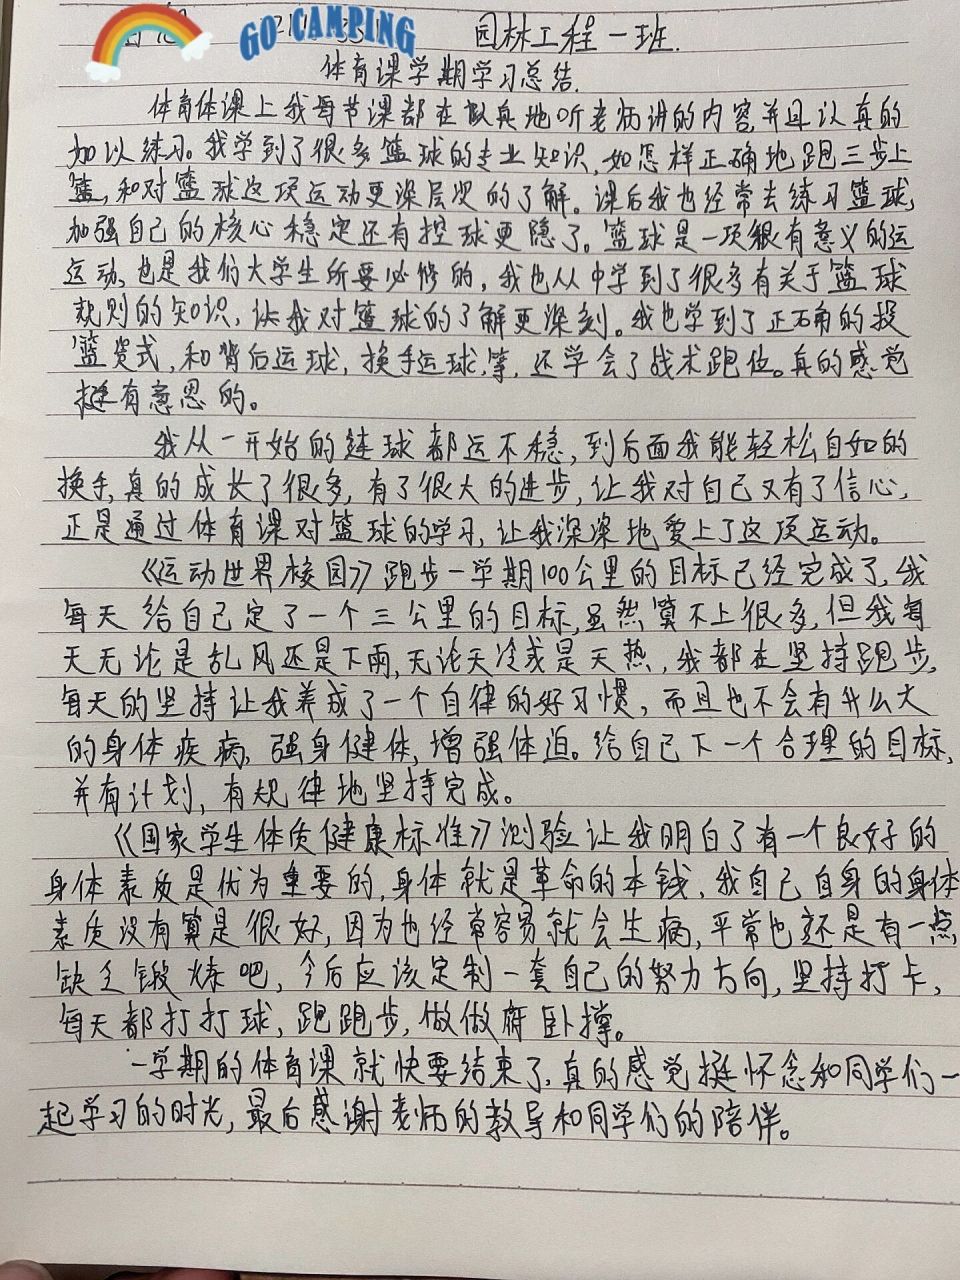 GO CAMPING
园林工程一班.
体育课学期学习总结.
体育体课上我每节课都在认真地听老师讲的内容,并且认真的
加以练习。我学到了很多篮球的专业知识,如怎样正确地跑三步上
篮,和对篮球这项运动更深层次的了解。课后我也经常去练习篮球,
加强自己的核心稳定还有控球更隐了。篮球是一项很有意义的运
运动,也是我们大学生所要必修的,我也从中学到了很多有关于篮球
规则的知识,让我对篮球的了解更深刻。我也学到了正确的投
篮姿式,和背后运球,换手运球,等,还学会了战术跑位。真的感觉
挺有意思的。
我从一开始的连球都运不稳,到后面我能轻松自如的
换手,真的成长了很多,有了很大的进步,让我对自己又有了信心,
正是通过体育课对篮球的学习,让我深深地爱上了这项运动。
《运动世界校园》跑步一学期100公里的目标已经完成了,我
每天给自己定了一个三公里的目标,虽然算不上很多,但我每
天无论是乱风还是下雨,无论天冷或是天热,我都在坚持跑步,
每天的坚持让我养成了一个自律的好习惯,而且也不会有什么大
的身体疾病,强身健体,增强体迫。给自己下一个合理的目标,
并有计划,有规律地坚持完成。
《国家学生体质健康标准》测验让我明白了有一个良好的
身体素质是优为重要的,身体就是革命的本钱,我自己自身的身体
素质没有算是很好,因为也经常容易就会生病,平常也还是有一点
缺乏锻炼吧,今后应该定制一套自己的努力方向,坚持打卡,
每天都打打球,跑跑步,做做俯卧撑。
一学期的体育课就快要结束了,真的感觉挺怀念和同学们一
起学习的时光,最后感谢老师的教导和同学们的陪伴。